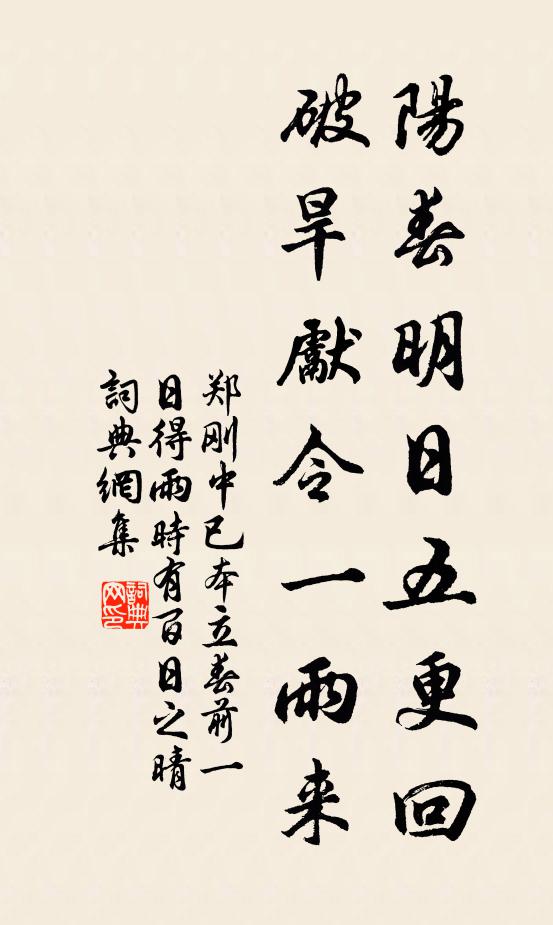 陽春明日五更回
破旱獻令一雨来
郑刚中已夲立春前一
日得雨時有百日之晴
詞典網集
詞典
网印